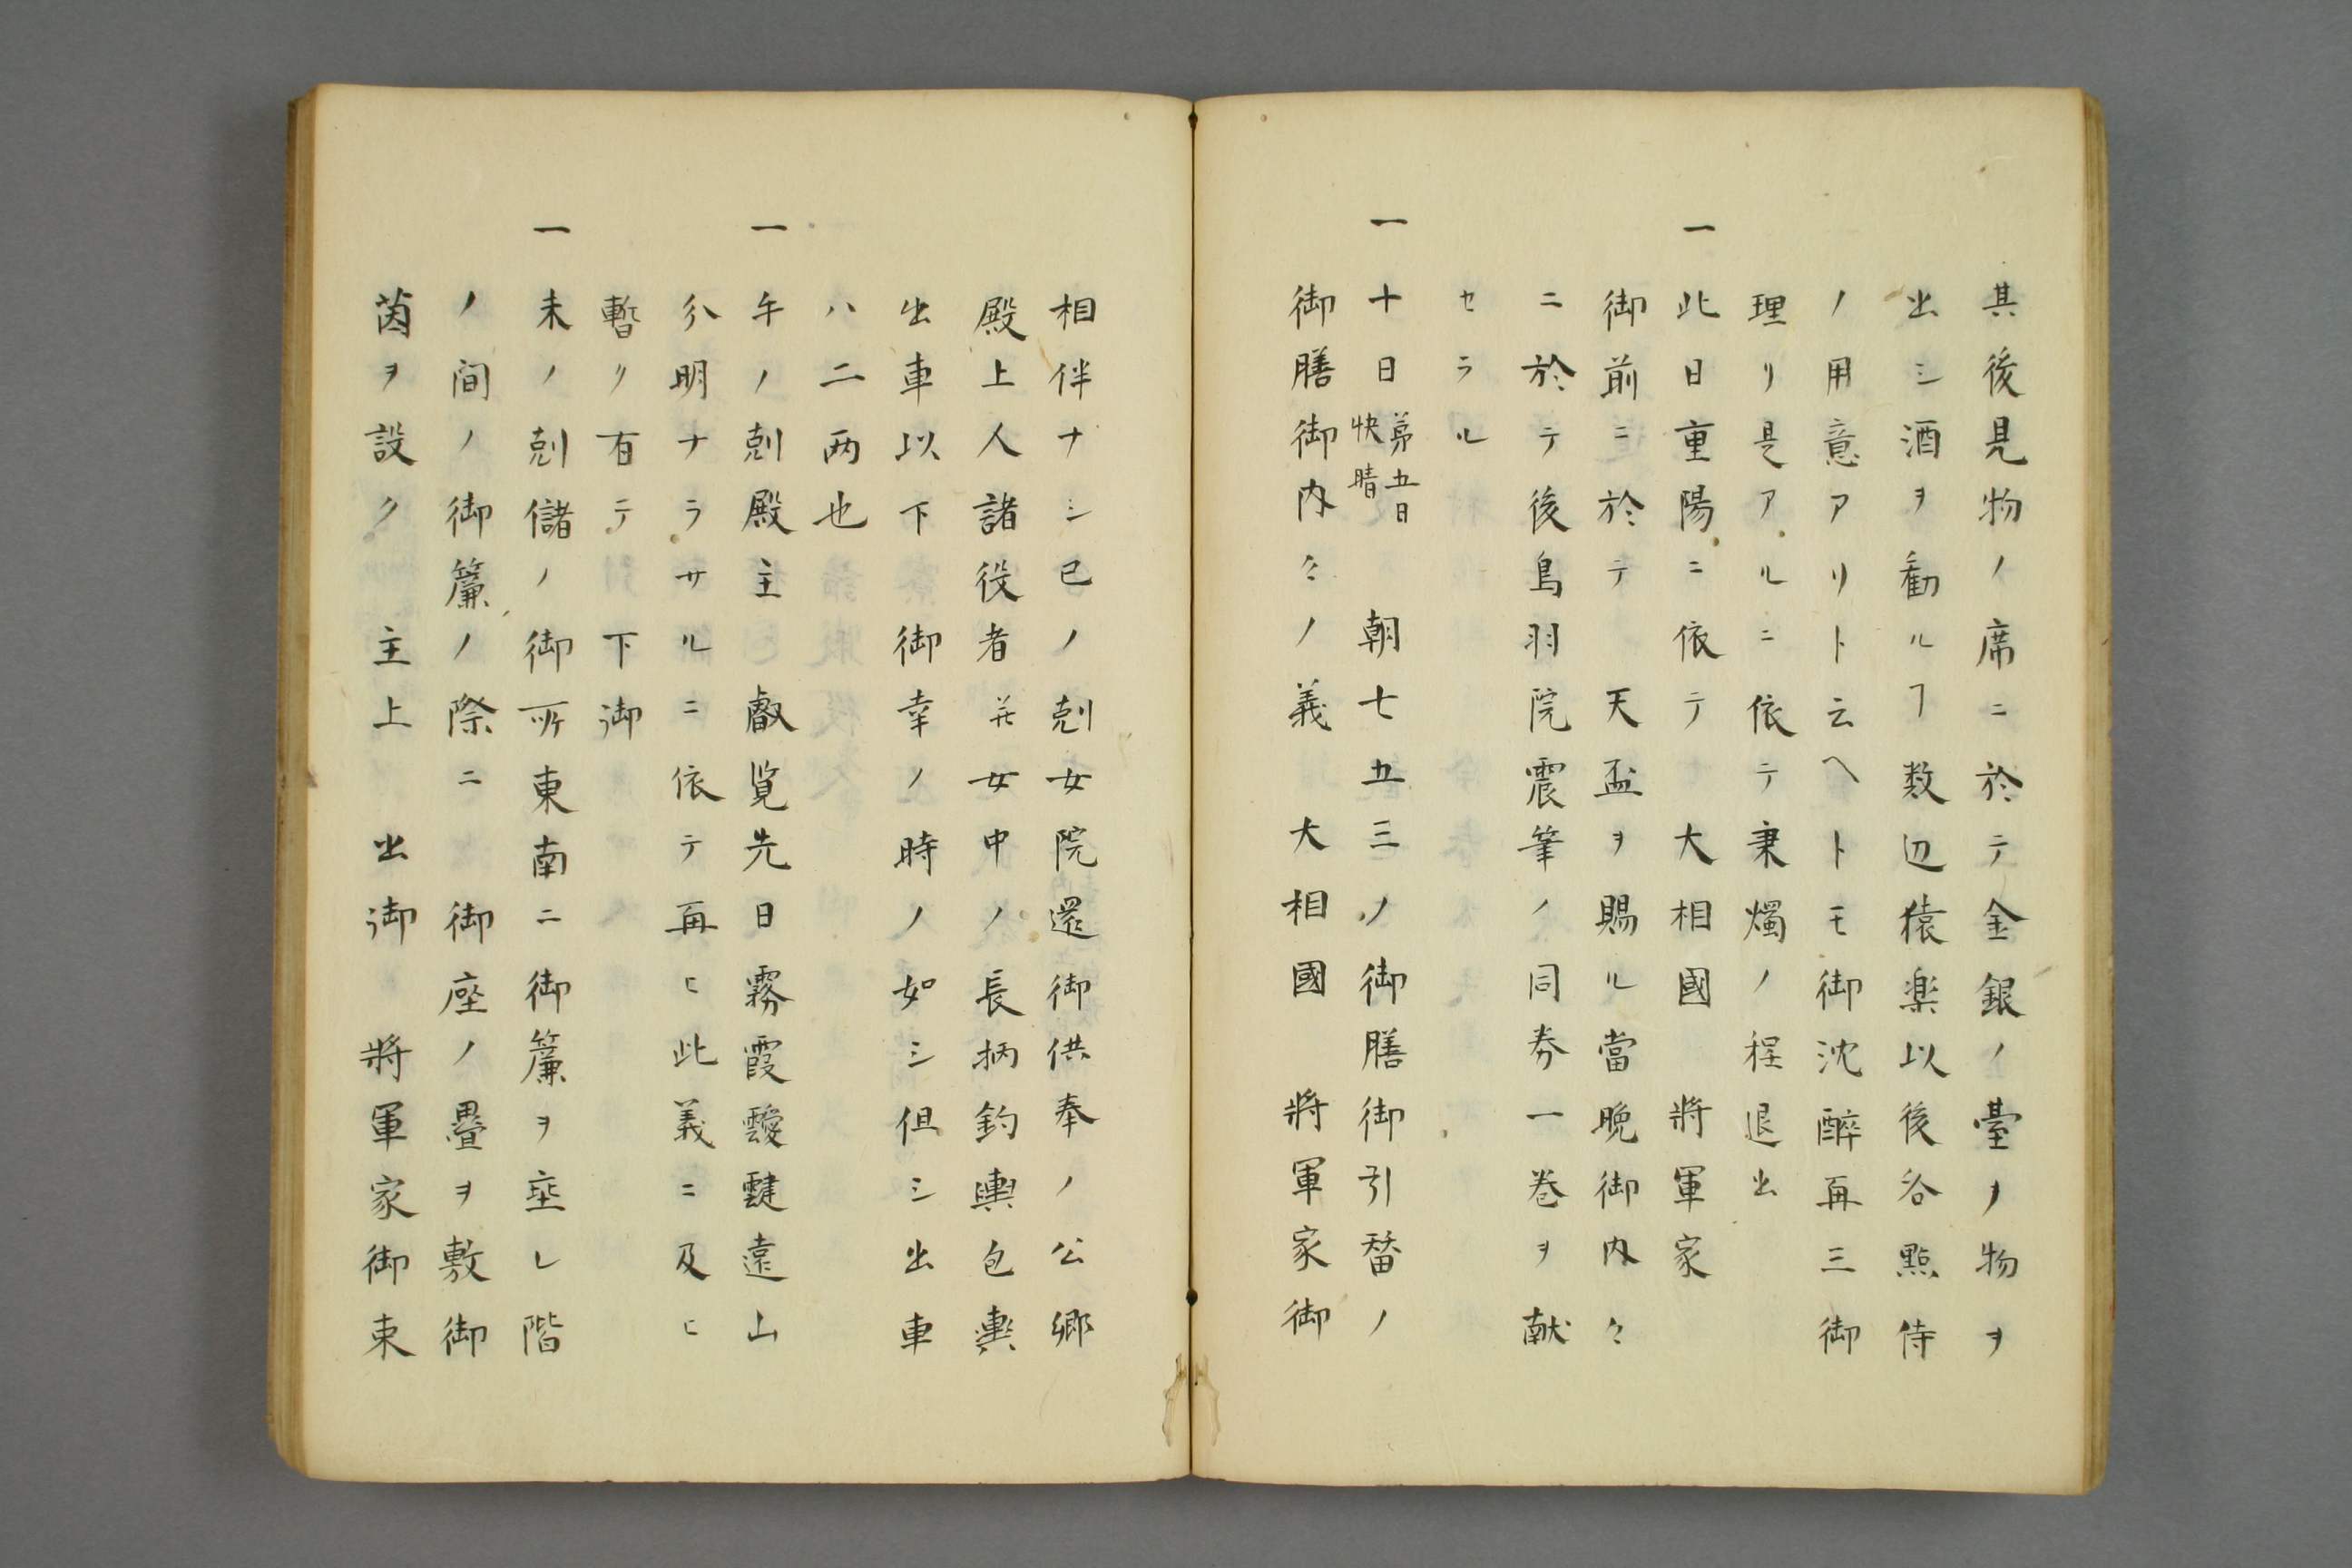 其後見物ノ席ニ於テ金銀ノ臺ノ物ヲ
出シ酒ヲ勧ルヿ数辺猿楽以後各點侍
ノ用意アリト云ヘトモ御沈醉再三御
理リ是アルニ依テ秉燭ノ程退出
一此日重陽ニ依テ 大相國 將軍家
御前ニ於テ 天盃ヲ賜ル當晩御内々
ニ於テ後鳥羽院震筆ノ同劵一巻ヲ献
セラル
一十日苐五日快晴 朝七五三ノ御膳御引替ノ
御膳御内々ノ義 大相國 將軍家御
相伴ナシ巳ノ剋女院還御供奉ノ公卿
殿上人諸役者并女中ノ長柄釣輿包輿
出車以下御幸ノ時ノ如シ但シ出車
ハ二两也
一午ノ剋殿主 叡覧先日霧霞靉靆遠山
分明ナラサルニ依テ再ヒ此義ニ及ヒ
暫リ有テ 下御
一未ノ剋儲ノ御所東南ニ御簾ヲ埀レ階
ノ間ノ御簾ノ際ニ 御座ノ疊ヲ敷御
茵ヲ設ク 主上 出御 將軍家御束